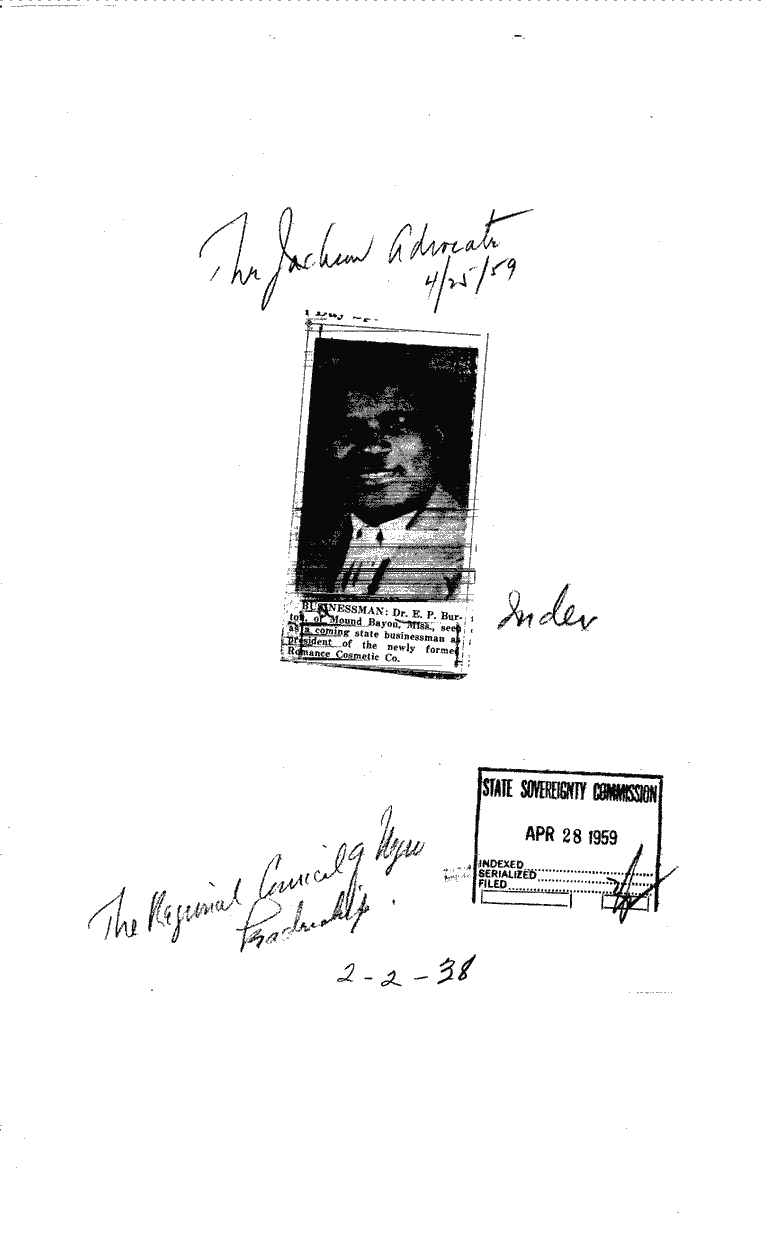 The Jackson Advocate
4/25/59
BUSINESSMAN: Dr. E. P. Bur-
ton, of Mound Bayou, Miss., seen
as a coming state businessman as
president of the newly formed
Romance Cosmetic Co.
Index
STATE SOVEREIGNTY COMMISSION
APR 28 1959
INDEXED
SERIALIZED
FILED
The Regional Council of Negro
Leadership.
2-2-38